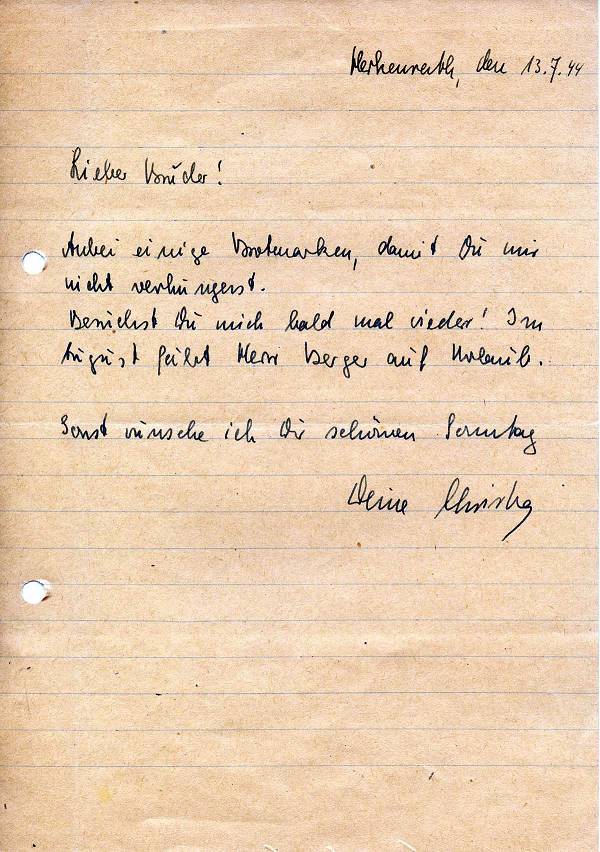 Herkenrath, den 13.7.44
Lieber Bruder!
Anbei einige Brotmarken, damit Du mir
nicht verhungerst.
Besuchst Du mich bald mal wieder! Im
August fährt Herr Berger auf Urlaub.
Sonst wünsche ich Dir schönen Sonntag
Deine Christa